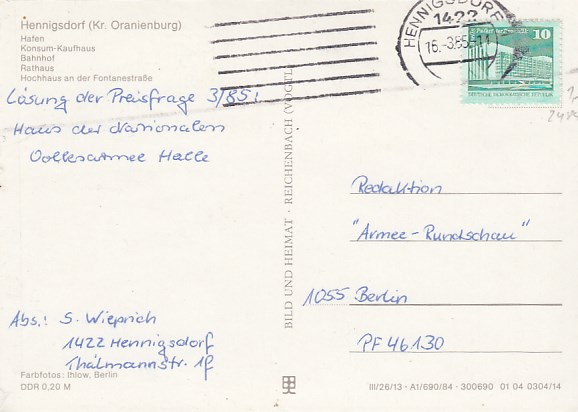 Hennigsdorf (Kr. Oranienburg)
Hafen
Konsum-Kaufhaus
Bahnhof
Rathaus
Hochhaus an der Fontanestraße
HENNIGSDORF
1422
16.-3.85
10
DEUTSCHE DEMOKRATISCHE REPUBLIK
Lösung der Preisfrage 3/85:
Haus der Nationalen
Volksarmee Halle
BILD UND HEIMAT · REICHENBACH (VOGTL
Redaktion
"Armee-Rundschau"
1055 Berlin
PF 46130
Abs.: S. Wieprich
1422 Hennigsdorf
Thälmannstr. 1f
Farbfotos: Ihlow, Berlin
DDR 0,20 M
III/26/13 · A1/690/84 · 300690 01 04 0304/14